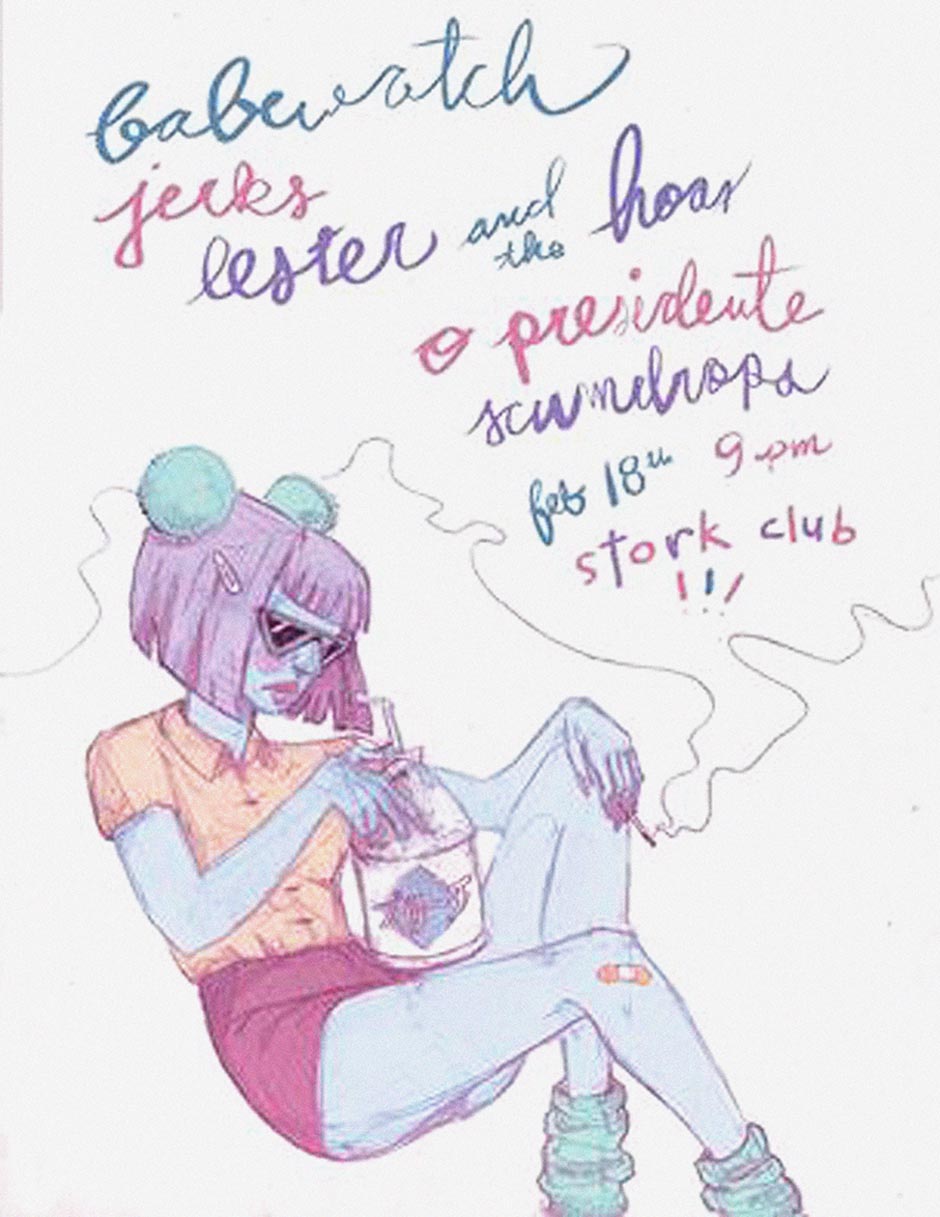 babewatch
jerks
lester and the hoax
o presidente
scumdrops
feb 18th 9pm
stork club
!!!